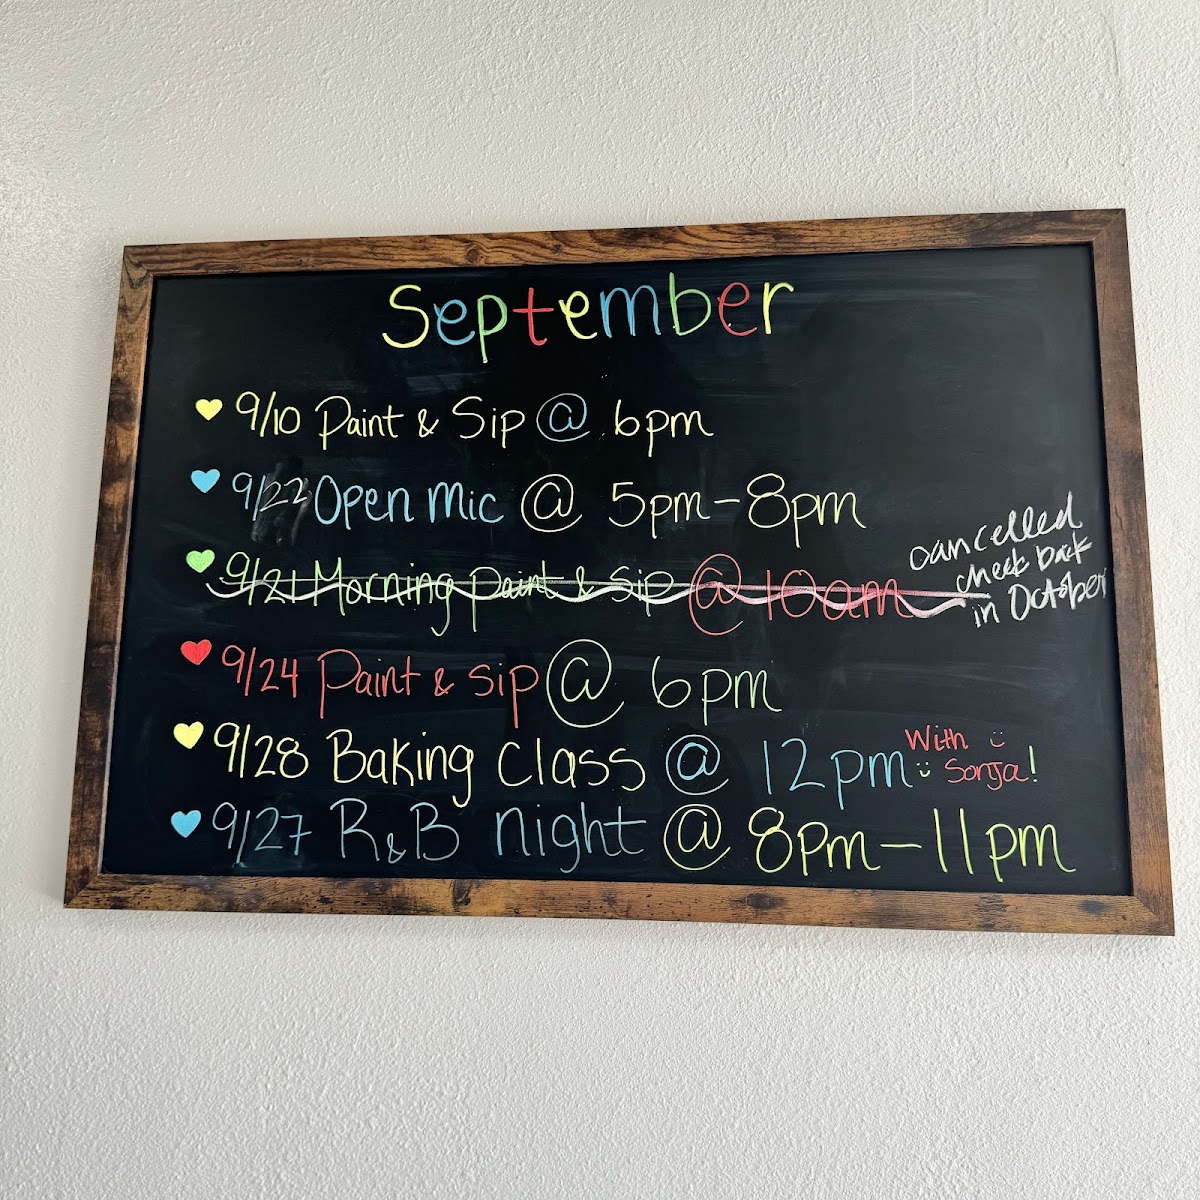 September
9/10 Paint & Sip @ 6pm
9/22 Open Mic @ 5pm-8pm
9/21 Morning Paint & Sip @ 10am
cancelled
check back
in October
9/24 Paint & Sip @ 6pm
9/28 Baking Class @ 12pm
With
Sonja!
9/27 R&B night @ 8pm-11pm